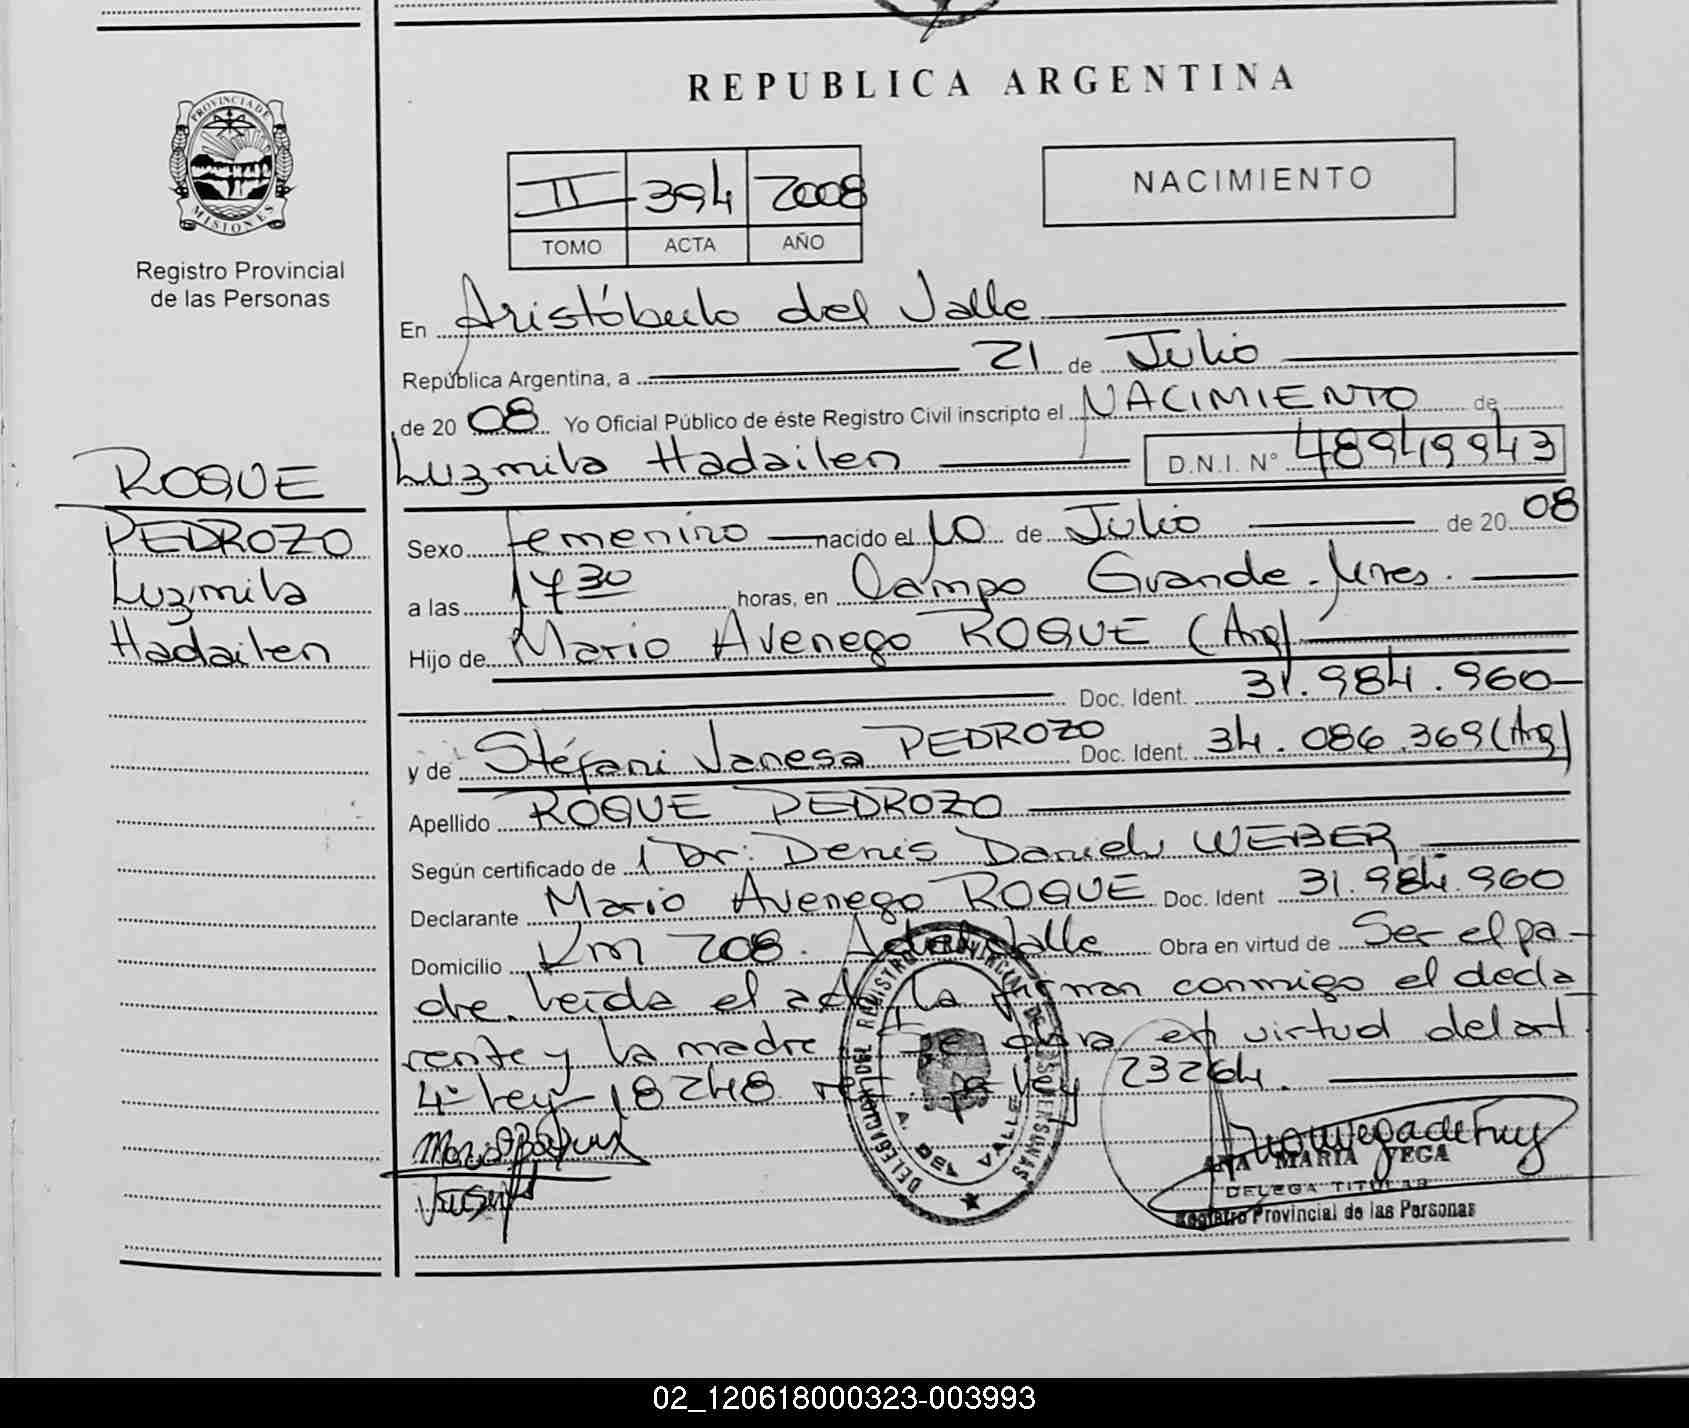 REPUBLICA ARGENTINA
PROVINCIA DE
MISIONES
Registro Provincial
de las Personas
II 394 2008
TOMO ACTA AÑO
NACIMIENTO
En Aristóbulo del Valle
República Argentina, a 21 de Julio
de 20 08 Yo Oficial Público de éste Registro Civil inscripto el NACIMIENTO de
Luzmila Hadailen D.N.I. N° 48949943
ROQUE
PEDROZO
Luzmila
Hadailen
Sexo femenino nacido el 10 de Julio de 20 08
a las 17 30 horas, en Campo Grande. Mnes.
Hijo de Mario Avenego ROQUE (Arg)
Doc. Ident. 31.984.960
y de Stéfani Vanesa PEDROZO Doc. Ident. 34.086.369 (Arg)
Apellido ROQUE PEDROZO
Según certificado de 1 Dr: Denis Daniel WEBER
Declarante Mario Avenego ROQUE Doc. Ident 31.984.960
Domicilio Km 208. A del Valle Obra en virtud de Ser el pa-
dre. Leída el acta la firman conmigo el decla
rante y la madre. Se obra en virtud del art
4° Ley 18248 ref. p. Ley 23264.
DELEGACION DEL REGISTRO PROVINCIAL DE LAS PERSONAS
A. DEL VALLE
ANA MARIA VEGA
DELEGA TITULAR
Registro Provincial de las Personas
02_120618000323-003993